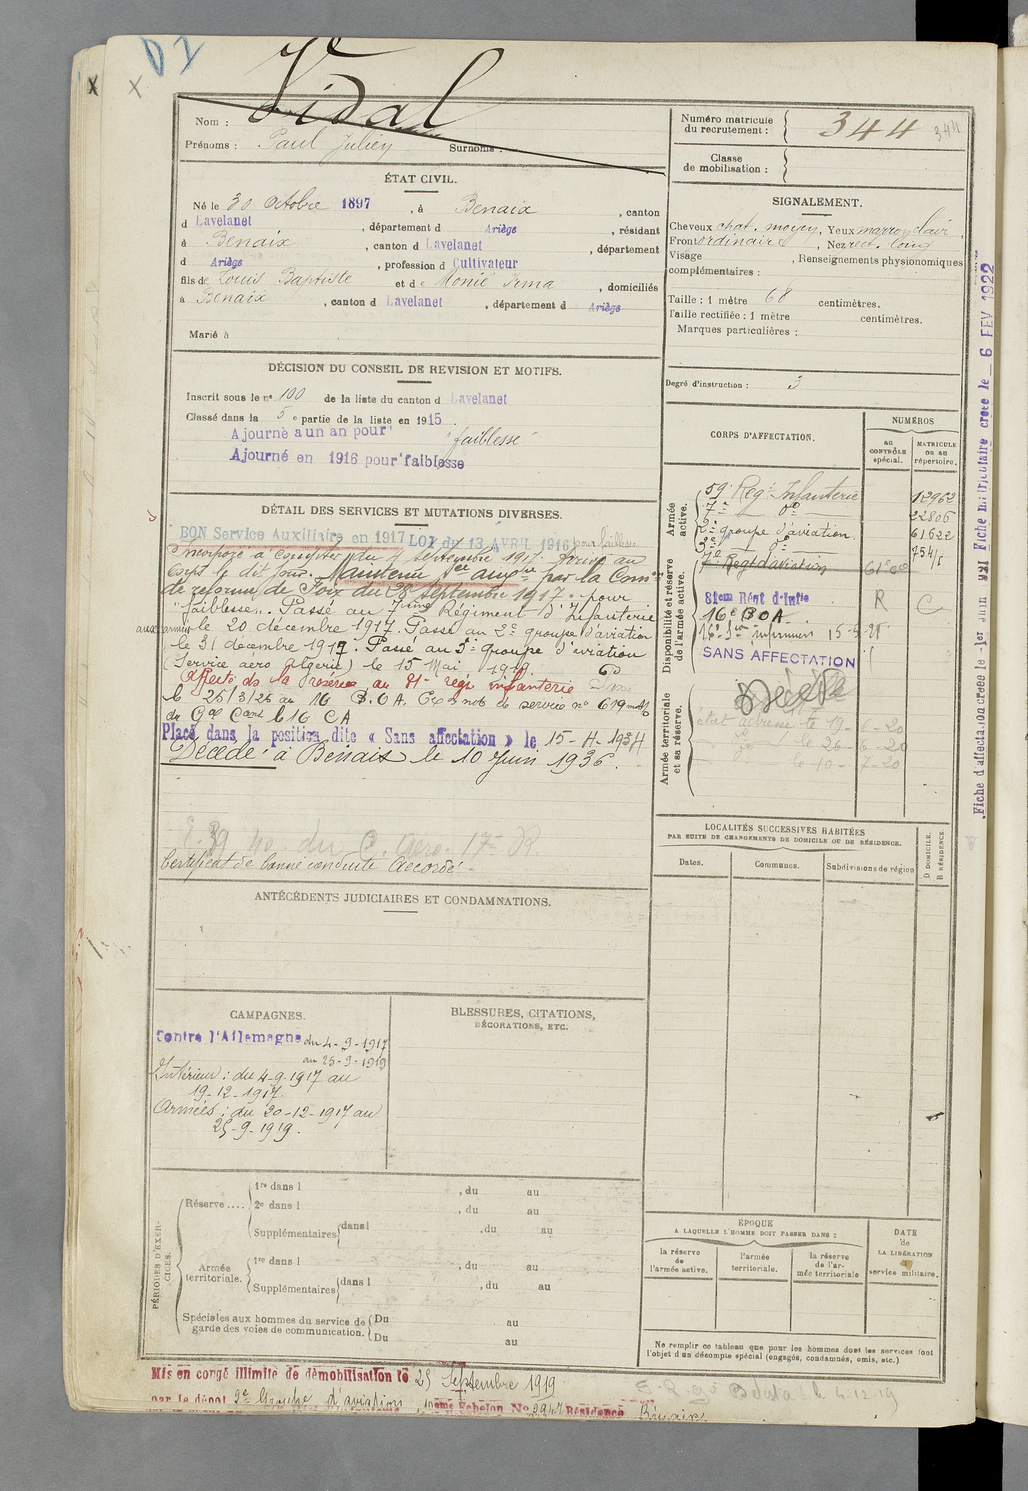 D1
x
x
Nom : Vidal
Prénoms : Paul Julien Surnoms :
Numéro matricule du recrutement : 344 344
Classe de mobilisation :
ÉTAT CIVIL.
Né le 30 Octobre 1897, à Benaix, canton
d Lavelanet, département d Ariège, résidant
à Benaix, canton d Lavelanet, département
d Ariège, profession d Cultivateur
fils de Louis Baptiste et de Monié Irma, domiciliés
à Benaix, canton d Lavelanet, département d Ariège
Marié à
SIGNALEMENT.
Cheveux chat. moyen, Yeux marron clair
Front ordinaire, Nez rect. long
Visage , Renseignements physionomiques
complémentaires :
Taille : 1 mètre 68 centimètres.
Taille rectifiée : 1 mètre centimètres.
Marques particulières :
Degré d'instruction : 3
DÉCISION DU CONSEIL DE REVISION ET MOTIFS.
Inscrit sous le n° 100 de la liste du canton d Lavelanet
Classé dans la 5e partie de la liste en 1915
Ajourné a un an pour "faiblesse"
Ajourné en 1916 pour faiblesse
DÉTAIL DES SERVICES ET MUTATIONS DIVERSES.
BON Service Auxiliaire en 1917 LOI du 13 AVRIL 1916 pour faiblesse
Incorporé à compter du 4 Septembre 1917. Arrivé au
Corps le dit jour. Maintenu Sce auxre par la Comon
de réforme de Foix du 28 septembre 1917 pour
"faiblesse". Passé au 7ème Régiment d'Infanterie
le 20 décembre 1917. Passé au 2e groupe d'aviation
aux armées
le 31 décembre 1917. Passé au 3e groupe d'aviation
(Service aéro Algérie) le 15 Mai 1919
Affecté ds la Réserve au 81e regt infanterie
le 25/3/26 au 16 B.O.A. note de service n° 619
du Gal Cant le 16 CA
Placé dans la position dite « Sans affectation » le 15-4-1934
Décédé à Benaix le 10 Juin 1936.
Certificat de bonne conduite Accordé
CORPS D'AFFECTATION.
NUMÉROS
AU CONTRÔLE spécial.
MATRICULE OU AU répertoire.
Armée active.
59e Regt Infanterie 12962
7e do 22806
2e groupe d'aviation 61622
3e do
Disponibilité et réserve de l'armée active.
Regt d'aviation
81eme Régt d'Infie R C
16e BOA
SANS AFFECTATION
Armée territoriale et sa réserve.
Décédé
LOCALITÉS SUCCESSIVES HABITÉES
PAR SUITE DE CHANGEMENTS DE DOMICILE OU DE RÉSIDENCE.
Dates.
Communes.
Subdivisions de région
D DOMICILE.
R RÉSIDENCE.
ANTÉCÉDENTS JUDICIAIRES ET CONDAMNATIONS.
CAMPAGNES.
Contre l'Allemagne du 4-9-1917
au 25-9-1919
Intérieur : du 4-9-1917 au
19-12-1917.
Armées : du 20-12-1917 au
25-9-1919.
BLESSURES, CITATIONS,
DÉCORATIONS, ETC.
PÉRIODES D'EXERCICES.
Réserve....
1re dans l , du au
2e dans l , du au
Supplémentaires dans l , du au
Armée territoriale.
1re dans l , du au
Supplémentaires dans l , du au
Spéciales aux hommes du service de garde des voies de communication.
Du au
Du au
ÉPOQUE
A LAQUELLE L'HOMME DOIT PASSER DANS :
la réserve de l'armée active.
l'armée territoriale.
la réserve de l'armée territoriale
DATE de LA LIBÉRATION du service militaire.
Ne remplir ce tableau que pour les hommes dont les services font
l'objet d'un décompte spécial (engagés, condamnés, omis, etc.)
Mis en congé illimité de démobilisation le 25 Septembre 1919
par le dépôt 2e Groupe d'aviation, Echelon No 2947 Résidence Benaix
Fiche d'affectation créée le 1er Juin 1921 Fiche matriculaire créée le 6 FEV 1922